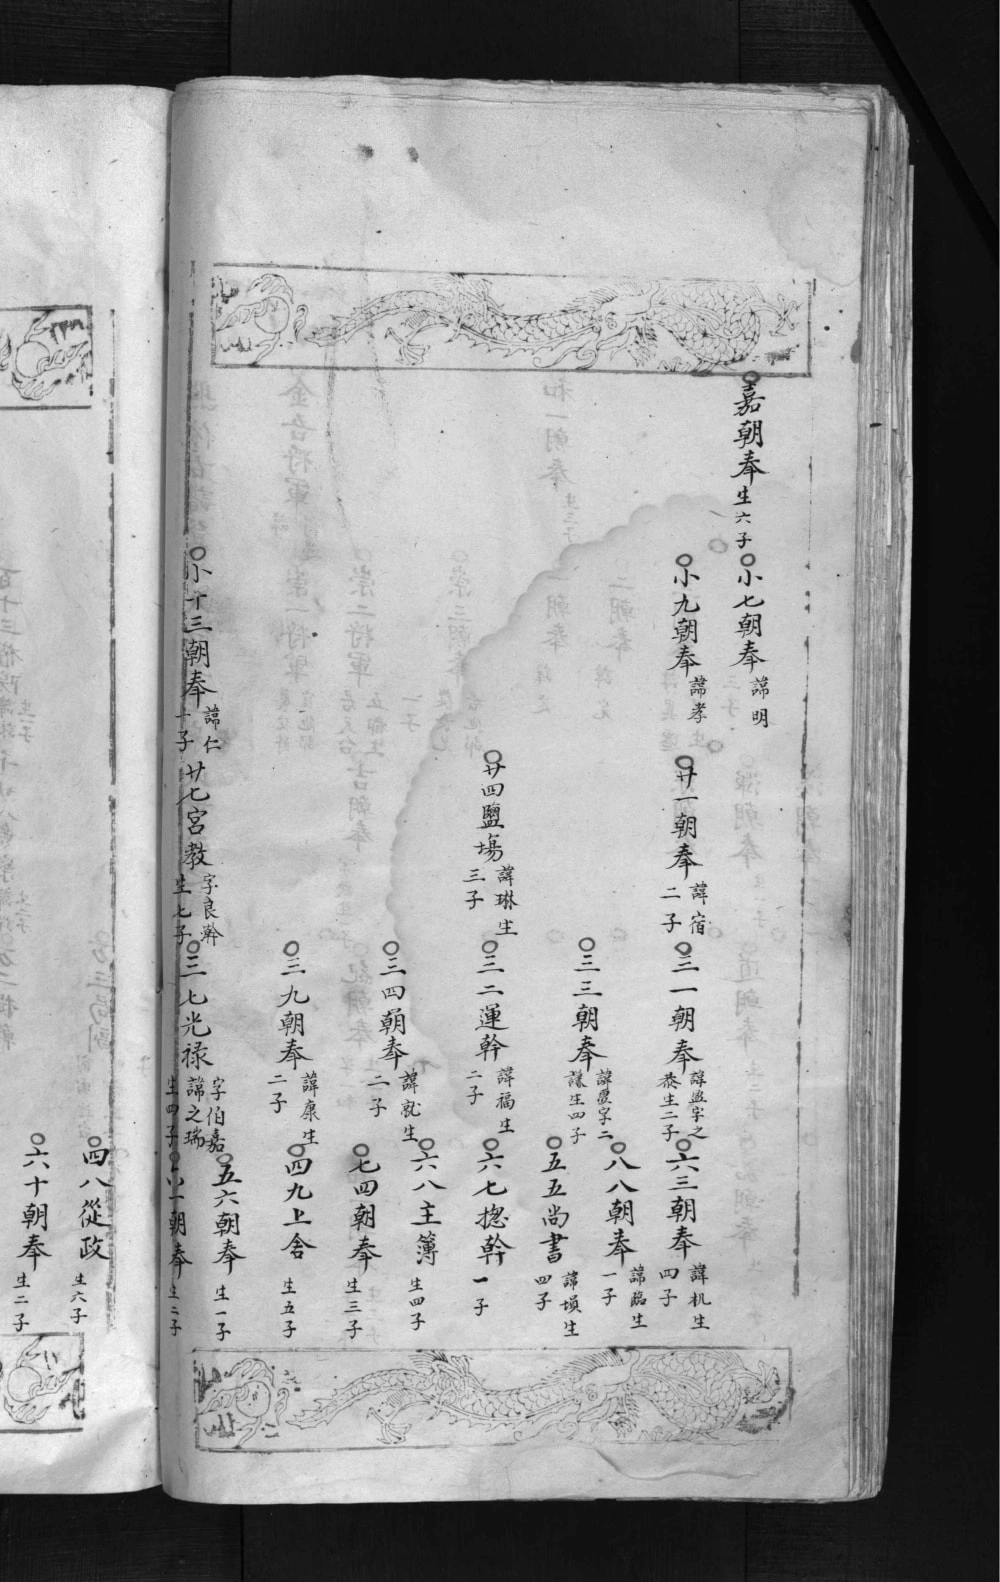 嘉朝奉 生六子
小七朝奉 諱明
小九朝奉 諱孝
廿一朝奉 諱宿 二子
三一朝奉 諱盈字之 恭生二子
六三朝奉 諱机生 四子
八八朝奉 諱臨生 一子
三三朝奉 諱慶字二 謙生四子
五五尚書 諱塤生 四子
廿四鹽塲 諱琳生 三子
三二運幹 諱福生 二子
六七揔幹 一子
三四朝奉 諱就生 二子
六八主簿 生四子
七四朝奉 生三子
三九朝奉 諱康生 二子
四九上舍 生五子
小十三朝奉 諱仁 十子
廿七宮教 字良幹 生七子
三七光禄 字伯嘉 諱之瑞 生四子
五六朝奉 生一子
六一朝奉 生二子
四八從政 生六子
六十朝奉 生二子